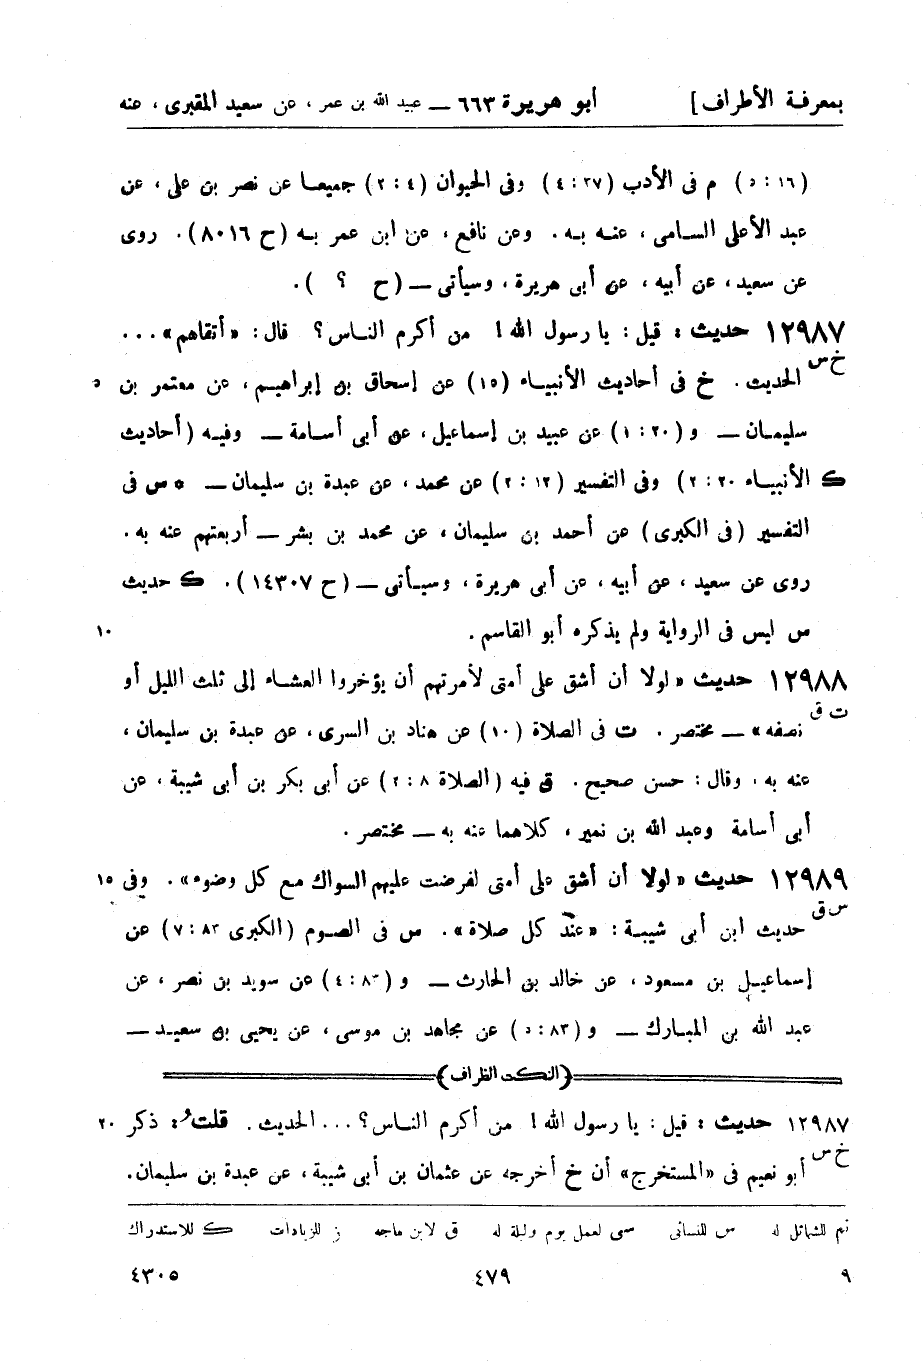 بمعرفة الأطراف] أبو هريرة ٦٦٣ ــ عبيد الله بن عمر ، عن سعيد المقبرى ، عنه
(١٦ : ٥) م فى الأدب (٣٧ : ٤) وفى الحيوان (٤ : ٢) جميعا عن نصر بن على ، عن
عبد الأعلى السامى ، عنه به . وعن نافع ، عن ابن عمر به (ح ٨٠١٦) . روى
عن سعيد ، عن أبيه ، عن أبى هريرة ، وسيأتى ــ (ح ؟ ) .
١٢٩٨٧ حديث : قيل : يا رسول الله ! من أكرم الناس ؟ قال : «أتقاهم» . . .
خ س
الحديث . خ فى أحاديث الأنبياء (١٥) عن إسحاق بن إبراهيم ، عن معتمر بن ٥
سليمان ــ و (٢٠ : ١) عن عبيد بن إسماعيل ، عن أبى أسامة ــ وفيه (أحاديث
ك الأنبياء ٢٠ : ٢) وفى التفسير (١٢ : ٢) عن محمد ، عن عبدة بن سليمان ــ * س فى
التفسير (فى الكبرى) عن أحمد بن سليمان ، عن محمد بن بشر ــ أربعتهم عنه به .
روى عن سعيد ، عن أبيه ، عن أبى هريرة ، وسيأتى ــ (ح ١٤٣٠٧) . ك حديث
س ليس فى الرواية ولم يذكره أبو القاسم . ١٠
١٢٩٨٨ حديث «لولا أن أشق على أمتى لأمرتهم أن يؤخروا العشاء إلى ثلث الليل أو
ت ق
نصفه» ــ مختصر . ت فى الصلاة (١٠) عن هناد بن السرى ، عن عبدة بن سليمان ،
عنه به ، وقال : حسن صحيح . ق فيه (الصلاة ٨ : ٢) عن أبى بكر بن أبى شيبة ، عن
أبى أسامة وعبد الله بن نمير ، كلاهما عنه به ــ مختصر .
١٢٩٨٩ حديث «لولا أن أشق على أمتى لفرضت عليهم السواك مع كل وضوء» . وفى ١٥
س ق
حديث ابن أبى شيبة : «عند كل صلاة» . س فى الصوم (الكبرى ٨٣ : ٧) عن
إسماعيل بن مسعود ، عن خالد بن الحارث ــ و (٨٣ : ٤) عن سويد بن نصر ، عن
عبد الله بن المبارك ــ و (٨٣ : ٥) عن مجاهد بن موسى ، عن يحيى بن سعيد ــ
(النكت الظراف)
١٢٩٨٧ حديث : قيل : يا رسول الله ! من أكرم الناس ؟ . . . الحديث . قلت : ذكر ٢٠
خ س
أبو نعيم فى «المستخرج» أن خ أخرجه عن عثمان بن أبى شيبة ، عن عبدة بن سليمان .
تم للشمائل له س للنسائى سى لعمل يوم وليلة له ق لابن ماجه ز للزيادات ك للاستدراك
٩ ٤٧٩ ٤٣٠٥